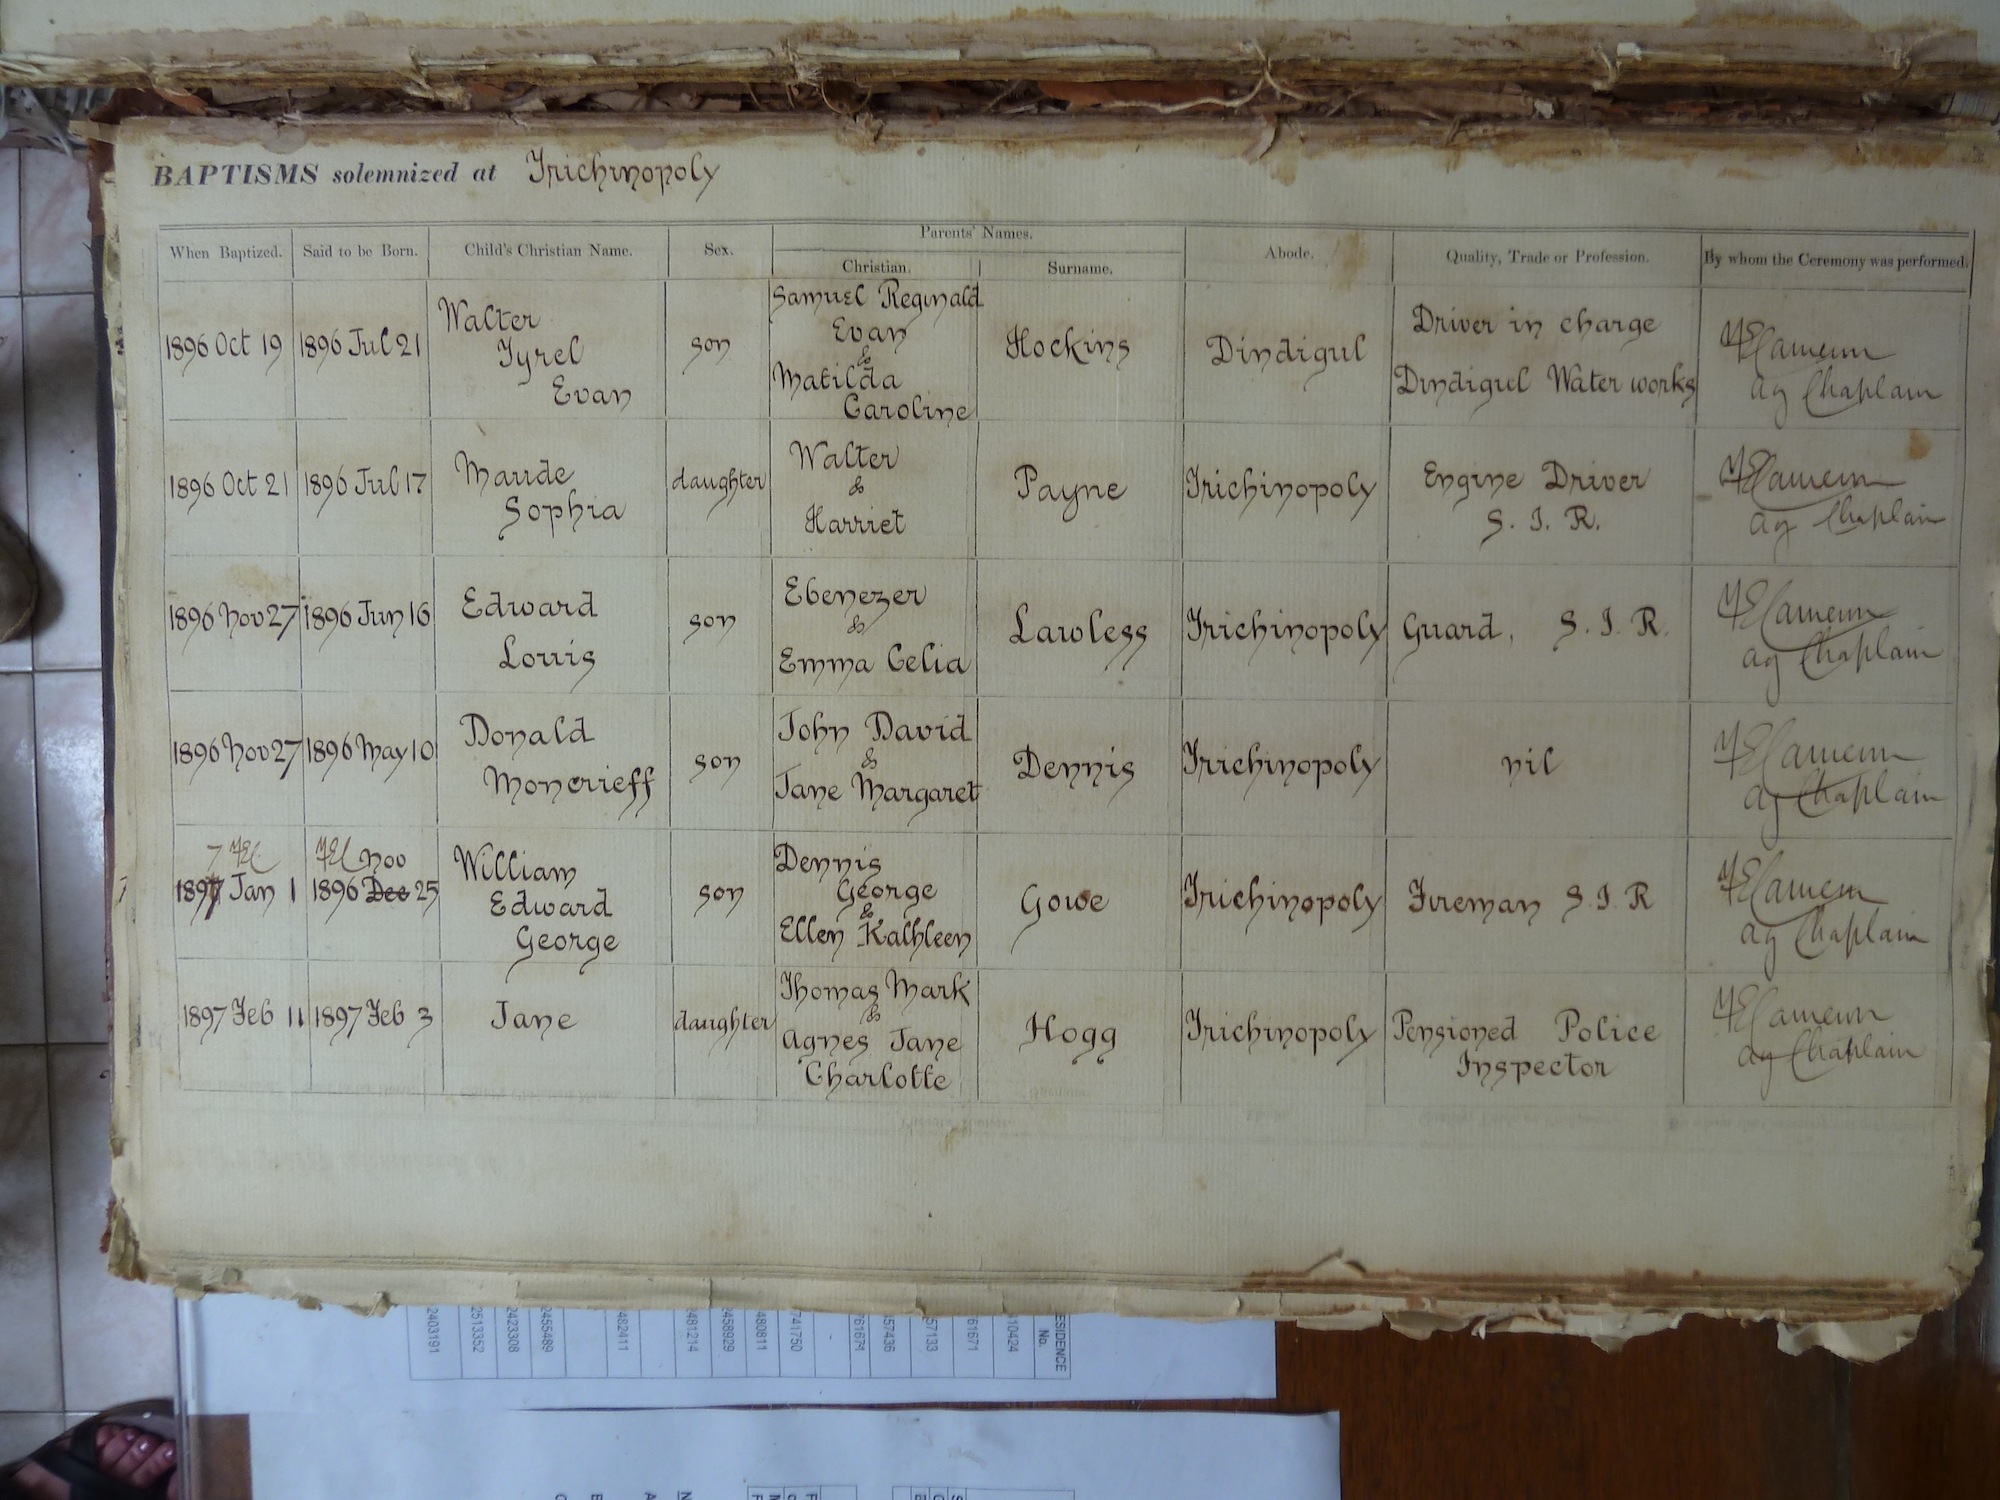 BAPTISMS solemnized at Trichinopoly
When Baptized. Said to be Born. Child's Christian Name. Sex. Parents' Names. Abode. Quality, Trade or Profession. By whom the Ceremony was performed.
Christian. Surname.
1896 Oct 19 1896 Jul 21 Walter Tyrel Evan son Samuel Reginald Evan & Matilda Caroline Hockins Dindigul Driver in charge Dindigul Water works ag Chaplain
1896 Oct 21 1896 Jul 17 Maude Sophia daughter Walter & Harriet Payne Trichinopoly Engine Driver S. I. R. ag Chaplain
1896 Nov 27 1896 Jun 16 Edward Louis son Ebenezer & Emma Celia Lawless Trichinopoly Guard, S. I. R. ag Chaplain
1896 Nov 27 1896 May 10 Donald Moncrieff son John David & Jane Margaret Dennis Trichinopoly nil ag Chaplain
7 Nov
1897 Jan 1 1896 Dec 25 William Edward George son Dennis George & Ellen Kathleen Gowe Trichinopoly Fireman S. I. R ag Chaplain
1897 Feb 11 1897 Feb 3 Jane daughter Thomas Mark & Agnes Jane Charlotte Hogg Trichinopoly Pensioned Police Inspector ag Chaplain
2403191
2513352
2423308
2455489
482411
481214
458929
480811
741750
761671
457436
57133
61671
10424
ESIDENCE
No.